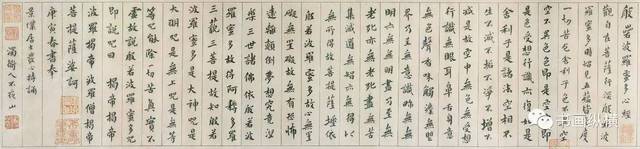 般若波羅蜜多心經
觀自在菩薩行深般若波
羅蜜多時照見五蘊皆空度
一切苦厄舍利子色不異空
空不異色色即是空空即
是色受想行識亦復如是
舍利子是諸法空相不
生不滅不垢不淨不增不
減是故空中無色無受想
行識無眼耳鼻舌身意
無色聲香味觸法無眼
界乃至無意識界無無
明亦無無明盡乃至無
老死亦無老死盡無苦
集滅道無智亦無得以
無所得故菩提薩埵依
般若波羅蜜多故心無罣
礙無罣礙故無有恐怖
遠離顛倒夢想究竟涅
槃三世諸佛依般若波
羅蜜多故得阿耨多羅
三藐三菩提故知般若
波羅蜜多是大神咒是
大明咒是無上咒是無等
等咒能除一切苦真實不
虛故說般若波羅蜜多咒
即說咒曰 揭帝揭帝
波羅揭帝波羅僧揭帝
菩提薩婆訶
庚寅春書奉
居士 心持誦
山
书画纵横